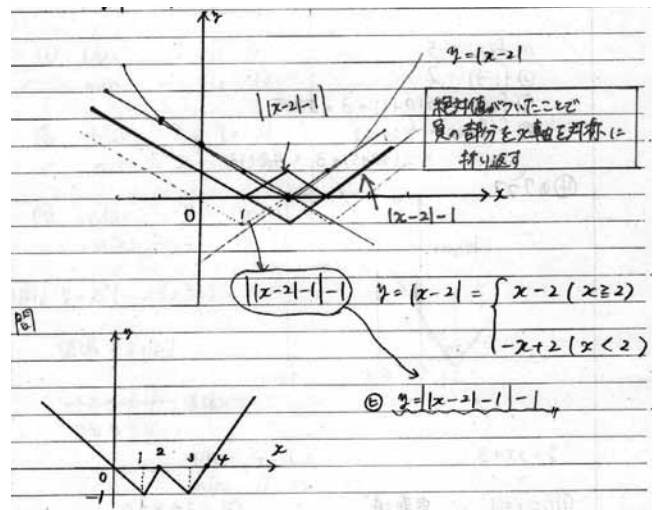 y
y=|x-2|
||x-2|-1|
絶対値がついたことで
負の部分をx軸を対称に
折り返す
0 1 x
|x-2|-1
||x-2|-1|-1
y=|x-2|= { x-2 (x≧2)
-x+2 (x<2)
問
y
ヒ y=||x-2|-1|-1
0 1 2 3 4 x
-1